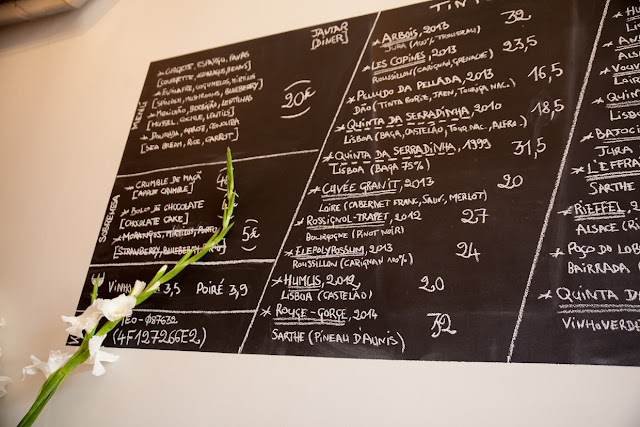 JANTAR
[DINER]
MENU
* CURGETE, ESPARGO, FAVAS
[COURGETTE, ASPARAGUS, BEANS]
* ESPINAFRE, COGUMELOS, MIRTILOS
[SPINACH, MUSHROOMS, BLUEBERRY]
* MEXILHÃO, BERBIGÃO, LENTILHAS
[MUSSEL, COCKLE, LENTILS]
* DOURADA, ARROZ, CENOURA
[SEA BREAM, RICE, CARROT]
20€
SOBREMESA
* CRUMBLE DE MAÇÃ
[APPLE CRUMBLE]
* BOLO DE CHOCOLATE
[CHOCOLATE CAKE]
* MORANGOS, MIRTILOS, PORTO
[STRAWBERRY, BLUEBERRY,
5€
3,5 POIRÉ 3,9
(4F19726GE2)
TINTO
* ARBOIS, 2013 32
JURA (100% TROUSSEAU)
* LES COPINES, 2013 23,5
ROUSSILLON (CARIGNAN, GRENACHE)
* PELUDO DA PELLADA, 2013 16,5
DÃO (TINTA RORIZ, JAEN, TOURIGA NAC.)
* QUINTA DA SERRADINHA, 2010 18,5
LISBOA (BAGA, CASTELÃO, TOUR. NAC., ALFRO.)
* QUINTA DA SERRADINHA, 1999 31,5
LISBOA (BAGA 75%)
* CUVÉE GRANIT, 2013 20
LOIRE (CABERNET FRANC, SAUV., MERLOT)
* ROSSIGNOL-TRAPET, 2012 27
BOURGOGNE (PINOT NOIR)
* ELEPOLYPOSSUM, 2013 24
ROUSSILLON (CARIGNAN 100%)
* HUMUS, 2012 20
LISBOA (CASTELÃO)
* ROUGE-GORGE, 2014 32
SARTHE (PINEAU D'AUNIS)
LISBOA
JURA
* L'EFFRA
SARTHE
* RIEFFEL, 2
ALSACE (RIES
* POÇO DO LOB
BAIRRADA
* QUINTA DA
VINHO VERDE